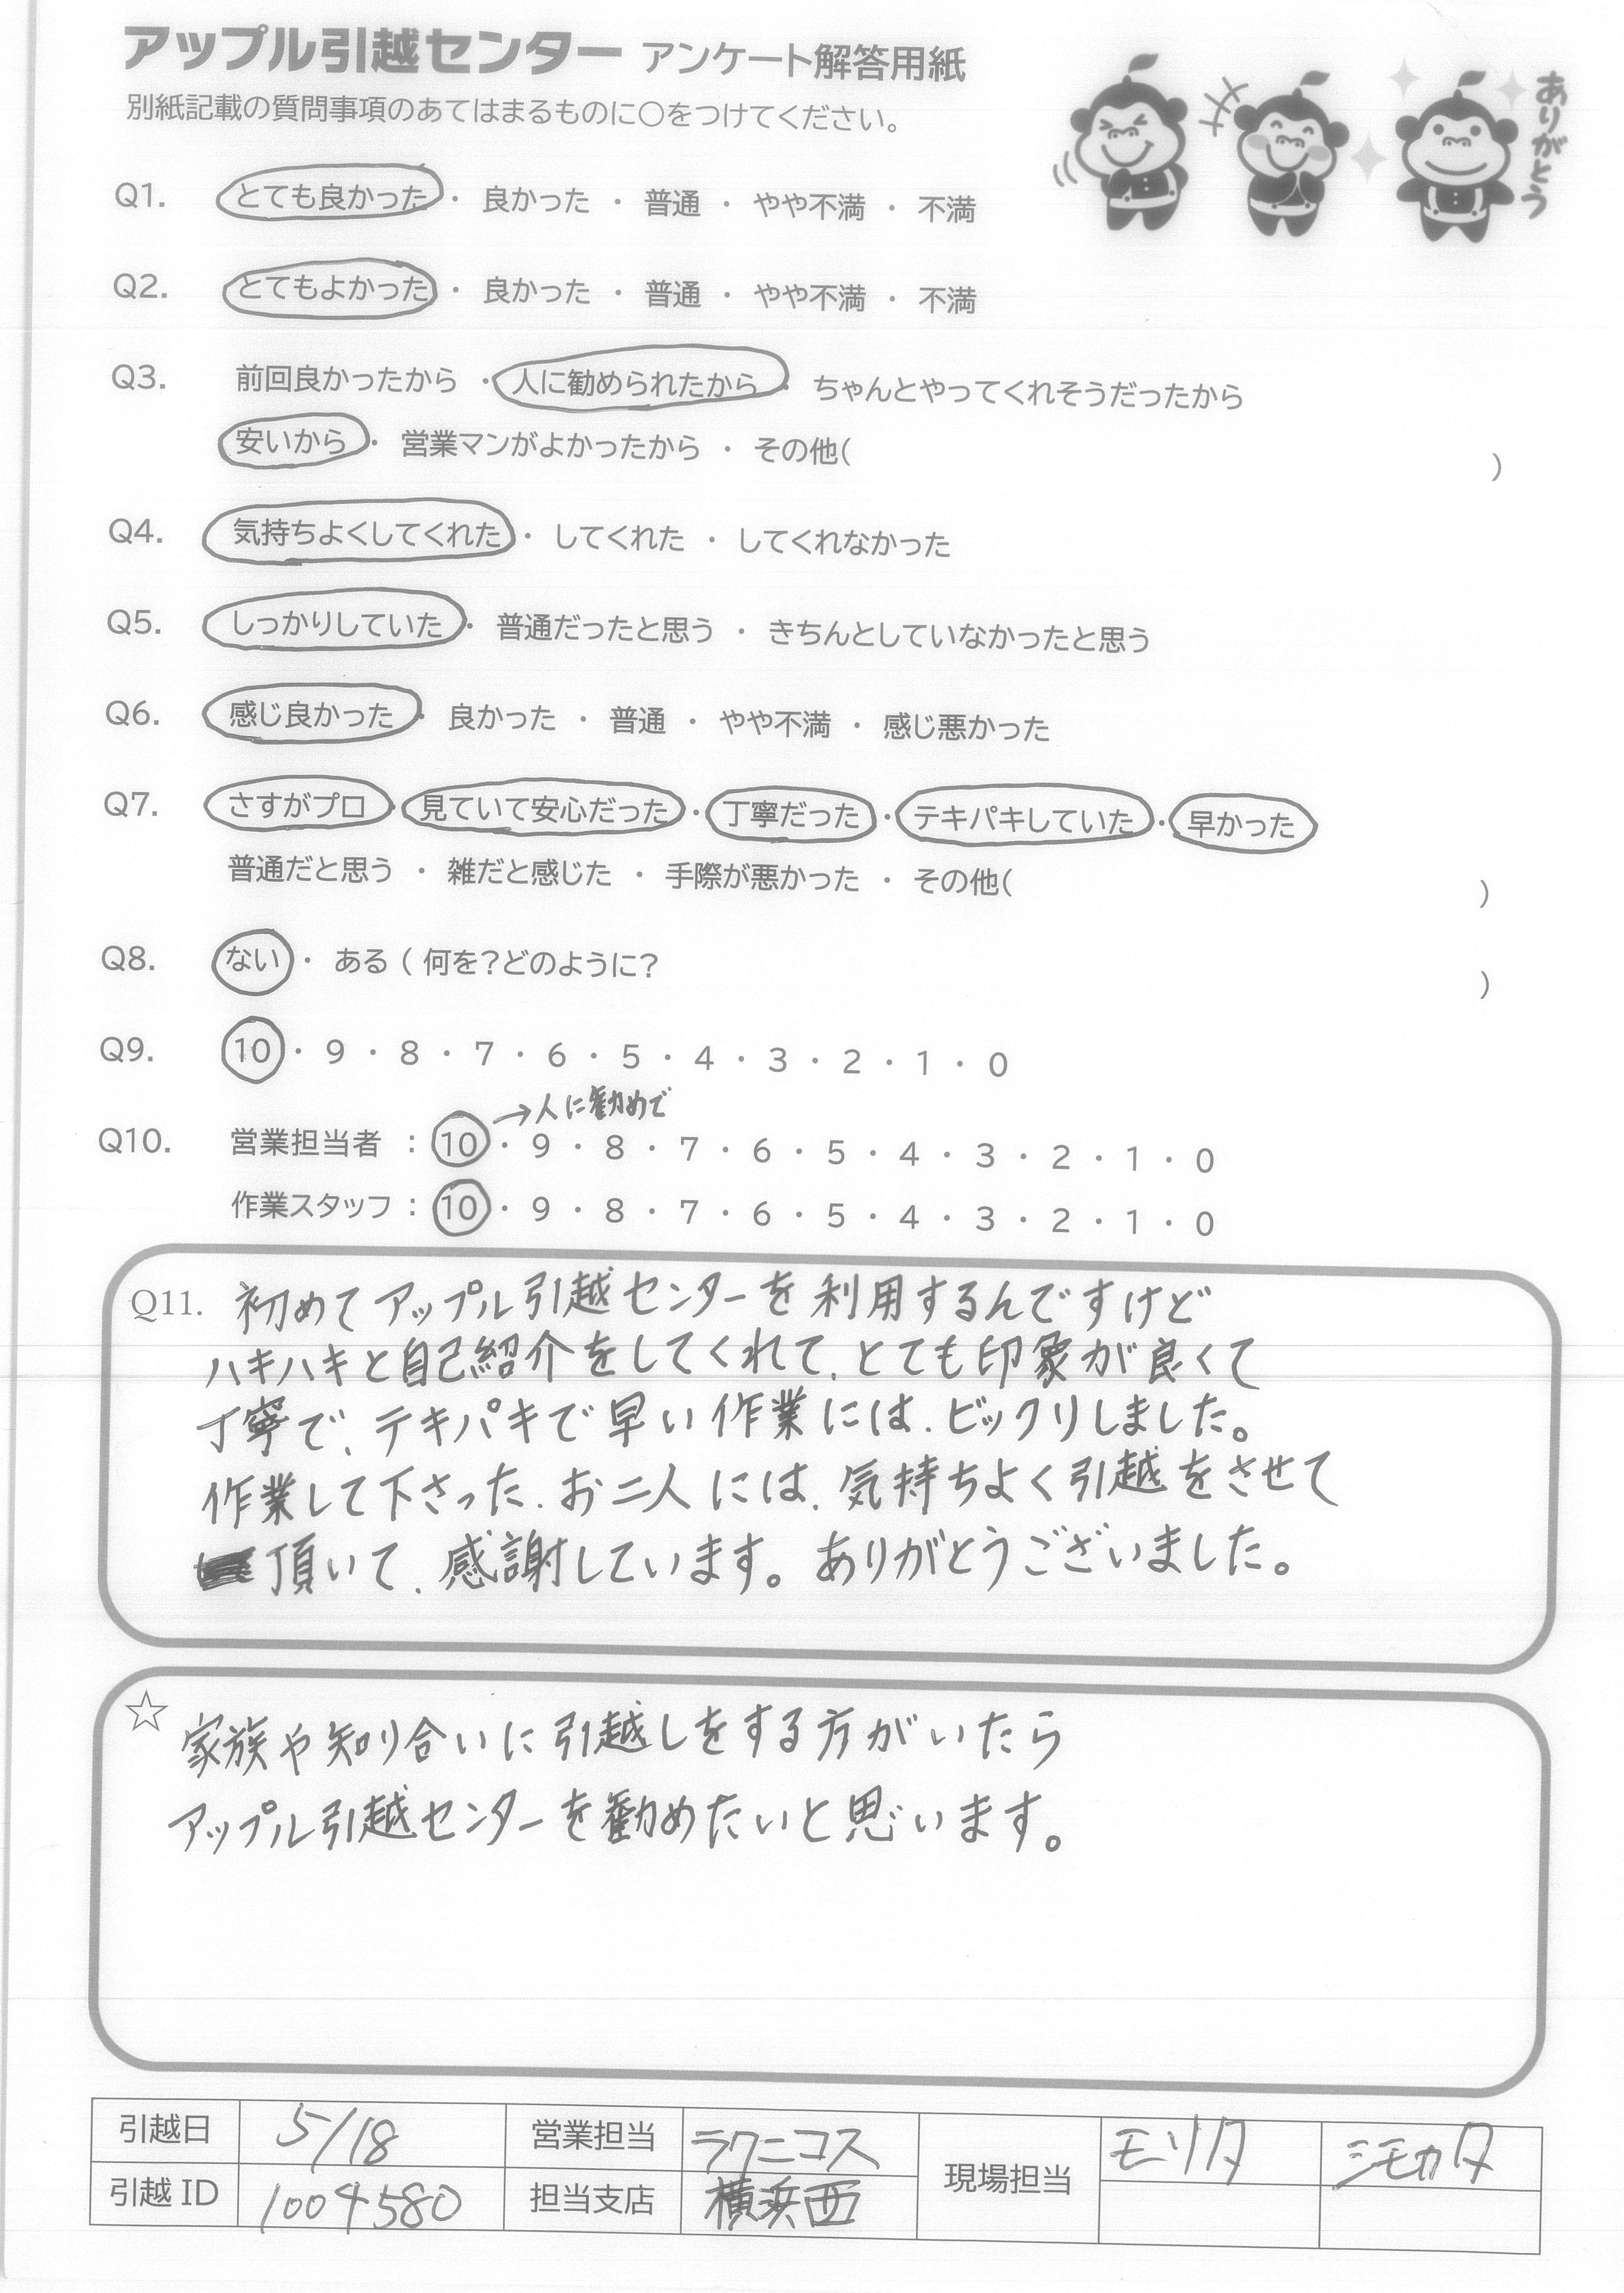 アップル引越センター アンケート解答用紙
別紙記載の質問事項のあてはまるものに〇をつけてください。
ありがとう
Q1. とても良かった ・ 良かった ・ 普通 ・ やや不満 ・ 不満
Q2. とてもよかった ・ 良かった ・ 普通 ・ やや不満 ・ 不満
Q3. 前回良かったから ・ 人に勧められたから ・ ちゃんとやってくれそうだったから
安いから ・ 営業マンがよかったから ・ その他( )
Q4. 気持ちよくしてくれた ・ してくれた ・ してくれなかった
Q5. しっかりしていた ・ 普通だったと思う ・ きちんとしていなかったと思う
Q6. 感じ良かった ・ 良かった ・ 普通 ・ やや不満 ・ 感じ悪かった
Q7. さすがプロ ・ 見ていて安心だった ・ 丁寧だった ・ テキパキしていた ・ 早かった
普通だと思う ・ 雑だと感じた ・ 手際が悪かった ・ その他( )
Q8. ない ・ ある ( 何を?どのように? )
Q9. 10 ・ 9 ・ 8 ・ 7 ・ 6 ・ 5 ・ 4 ・ 3 ・ 2 ・ 1 ・ 0
→人に勧めで
Q10. 営業担当者 : 10 ・ 9 ・ 8 ・ 7 ・ 6 ・ 5 ・ 4 ・ 3 ・ 2 ・ 1 ・ 0
作業スタッフ : 10 ・ 9 ・ 8 ・ 7 ・ 6 ・ 5 ・ 4 ・ 3 ・ 2 ・ 1 ・ 0
Q11. 初めてアップル引越センターを利用するんですけど
ハキハキと自己紹介をしてくれて、とても印象が良くて
丁寧で、テキパキで早い作業には、ビックリしました。
作業して下さった、お二人には、気持ちよく引越をさせて
頂いて、感謝しています。ありがとうございました。
☆ 家族や知り合いに引越しをする方がいたら
アップル引越センターを勧めたいと思います。
引越日 5/18 営業担当 ラクニコス 現場担当 モリタ シモカタ
引越ID 1004580 担当支店 横浜西